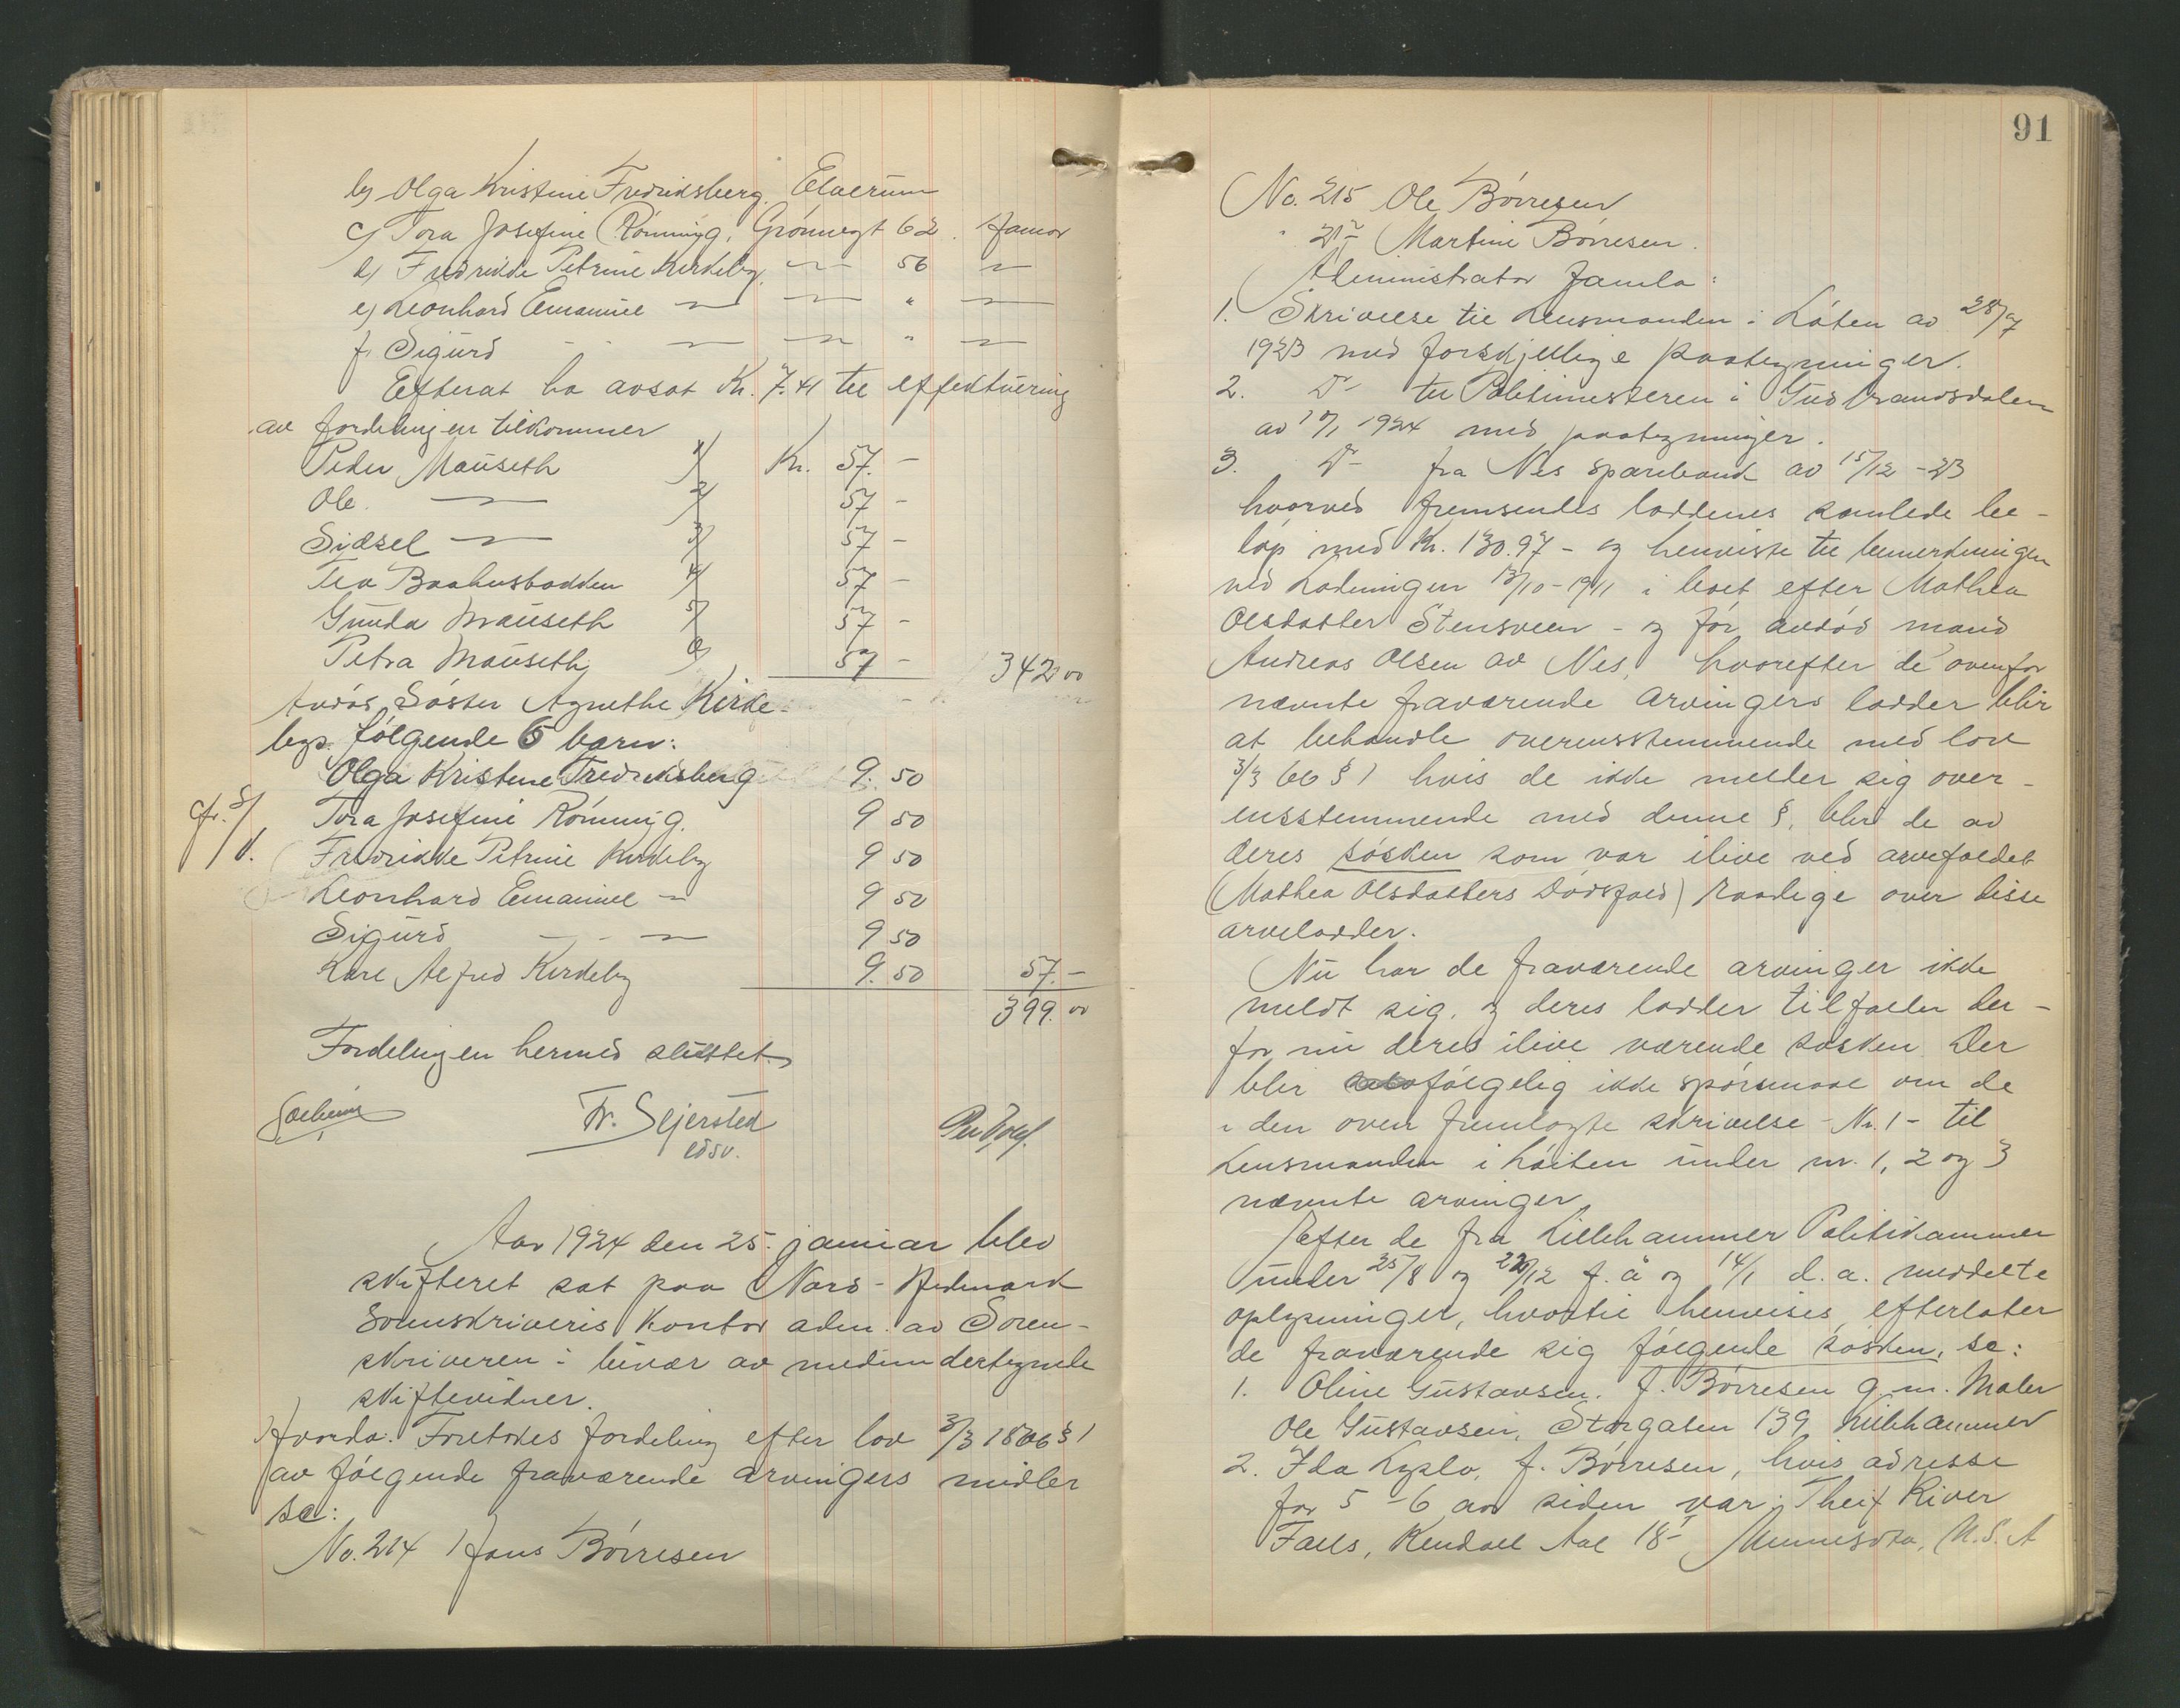 b) Olga Kristine Fredriksberg, Elverum
c) Tora Josefine Rönning, Grönnegt 62. Hamar
d) Fredrikke Petrine Kirkeby, — 56 —
e) Leonhard Emanuel — — " —
f. Sigurd — — " —
Efterat ha avsat Kr. 7.41 til effektuering
av fordelingen tilkommer
Peder Mauseth 1/ Kr. 57. -
Ole — 2/ 57 -
Sidsel — 3/ 57 -
Tea Baahusbakken 4/ 57 -
Gunda Mauseth 5/ 57 -
Petra Mauseth 6/ 57 - 342 00
Avdöd söster Agnethe Kirke-
bys følgende 6 barn:
Olga Kristine Fredriksberg 9. 50
Tora Josefine Rönning. 9 50
Fredrikke Petrine Kirkeby 9 50
Leonhard Emanuel — 9 50
Sigurd — 9 50
Karl Alfred Kirkeby 9. 50 57. -
399. 00
Fordelingen hermed sluttet.
Solheim Fr. Sejersted
edsv.
Aar 1924 den 25. januar blev
skifteret sat paa Nord-Hedmark
Sorenskriveris kontor adm. av Soren-
skriveren i bivær av medundertegnede
skiftevidner.
Hvorda: Foretokes fordeling efter lov 3/3 1866 § 1
av følgende fraværende arvingers midler
sc:
No. 214 Hans Börresen
91
No. 215 Ole Börresen
" 217 Martin Börresen.
Administrator framla:
1. Skrivelse til Lensmanden i Löten av 28/7
1923 med forskjellige paategninger.
2. Do til Politimesteren i Gudbrandsdalen
av 10/1 1924 med paategninger.
3. Do fra Nes sparebank av 15/12 - 23
hvorved fremsendes loddenes samlede be-
löp med Kr. 130.97 - og henviste til bemerkningen
ved Lodningen 13/10 - 19/11 i boet efter Mathea
Olsdatter Stensveen - og för avdöd mand
Andreas Olsen av Nes, hvorefter de ovenfor
nævnte fraværende arvingers lodder blir
at behandle overensstemmende med lov
3/3 66 § 1 hvis de ikke melder sig over-
ensstemmende med denne §, blir de av
deres sösken som var ilive ved arvefaldet
(Mathea Olsdatters Dödsfald) raadige over disse
arvelodder.
Nu har de fraværende arvinger ikke
meldt sig, og deres lodder tilfalder der-
for nu deres ilive værende sösken. Der
blir følgelig ikke spörsmaal om de
i den oven fremlagte skrivelse - No. 1 - til
Lensmanden i Löiten under nr. 1, 2 og 3
nævnte arvinger.
Efter de fra Lillehammer Politikammer
under 25/8 og 22/12 f. å og 14/1 d. a. meddelte
oplysninger, hvortil henvises, efterlater
de fraværende sig følgende sösken, sc:
1. Oline Gustavsen. f. Börresen g. m. Maler
Ole Gustavsen, Storgaten 139 Lillehammer
2. Ida Lyslo, f. Börresen, hvis adresse
for 5 - 6 aar siden var: Theif River
Falls, Kendall Aae 18- Minnesota, U.S.A